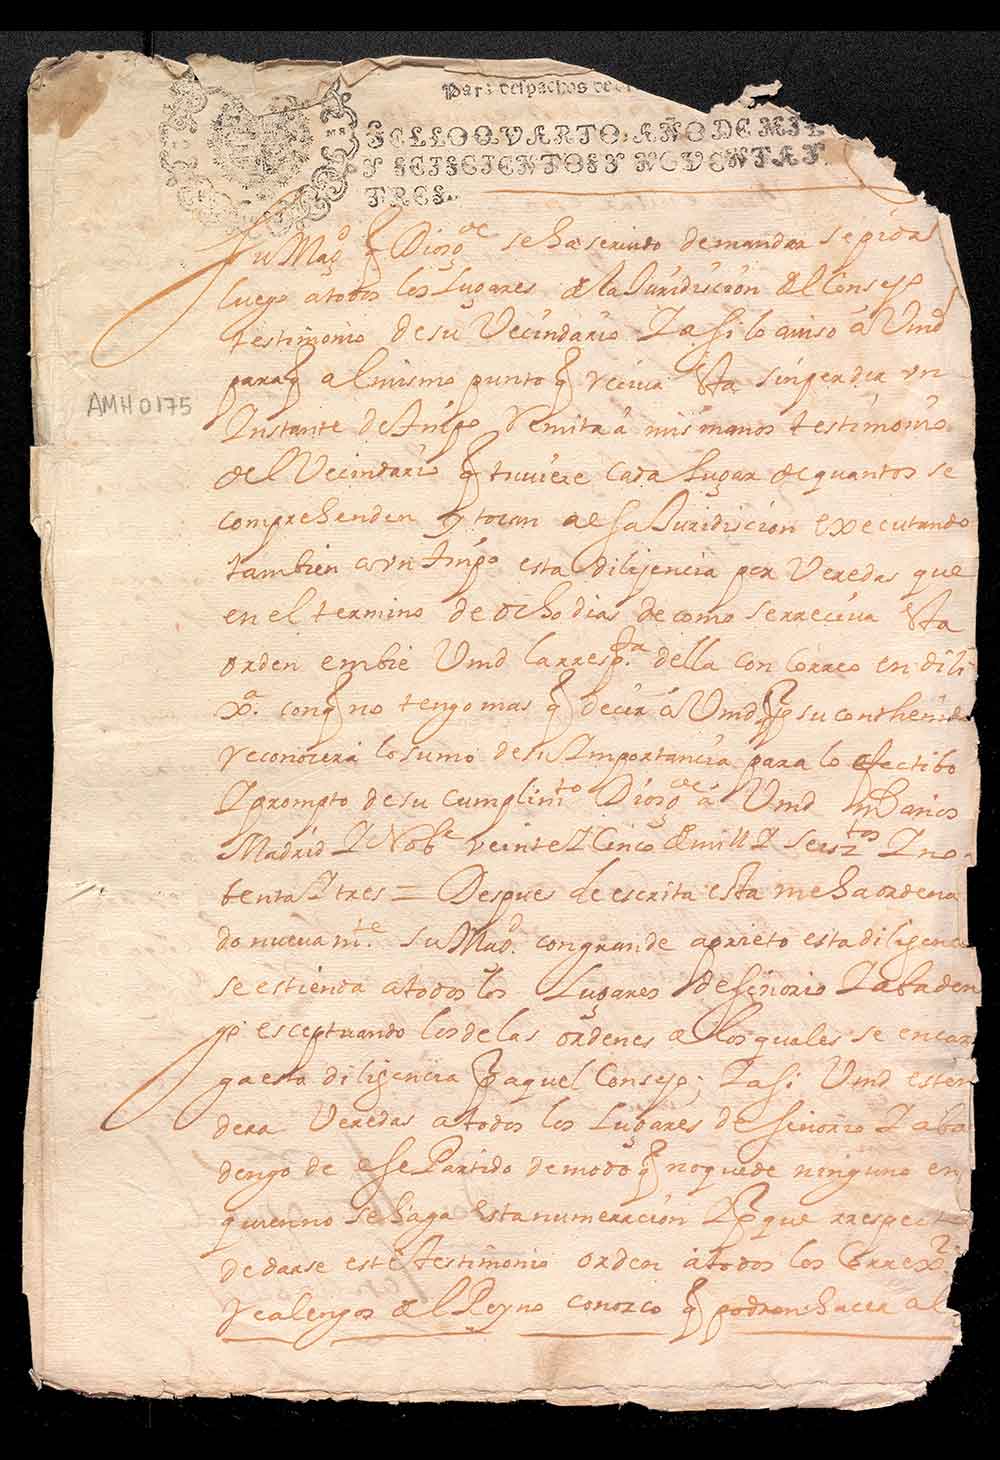 Para despachos de
SELLO QVARTO, AÑO DE MIL
Y SEISCIENTOS Y NOVENTA Y
TRES.
Su Magd q Dios ge se ha seruido de mandar se pida
luego a todos los Lugares de la Juridiscion del Consejo
testimonio de su Vecindario I asi lo auiso a Vmd
para q al mismo punto q reciua esta sin perder vn
AMH0175
Instante de tiempo remita a mis manos testimonio
del Vecindario q tuuiere cada Lugar de quantos se
comprehenden y tocan a esa Juridiscion executando
tambien con tiempo esta dilijencia por Veredas que
en el termino de ocho dias de como se rreciua esta
orden embie Vmd la rrespta della con Correo en dili
xa. con q no tengo mas q decir a Vmd pues su conthenido
reconocera lo sumo de su Importancia para lo efectibo
I prompto de su cumplimto Dios ge a Vmd ms años
Madrid I Nobe veinte I Cinco de mill I seisztos I no-
benta I tres = Despues de escrita esta me ha ordena
do nueuamte. su Magd. con grande aprieto esta diligenci
se estienda a todos los Lugares de Señorio I abaden
go esceptuando los de las ordenes a los quales se encar
ga esta diligencia por aquel Consejo; I asi Vmd esten
dera Veredas a todos los Lugares de Señorio I aba
dengo de ese Partido de modo q no quede ninguno en
quien no se haga esta numerazion I por que rrespecto
de darse este testimonio orden a todos los Correxres
realengos del Reyno conozco q podran hacer al